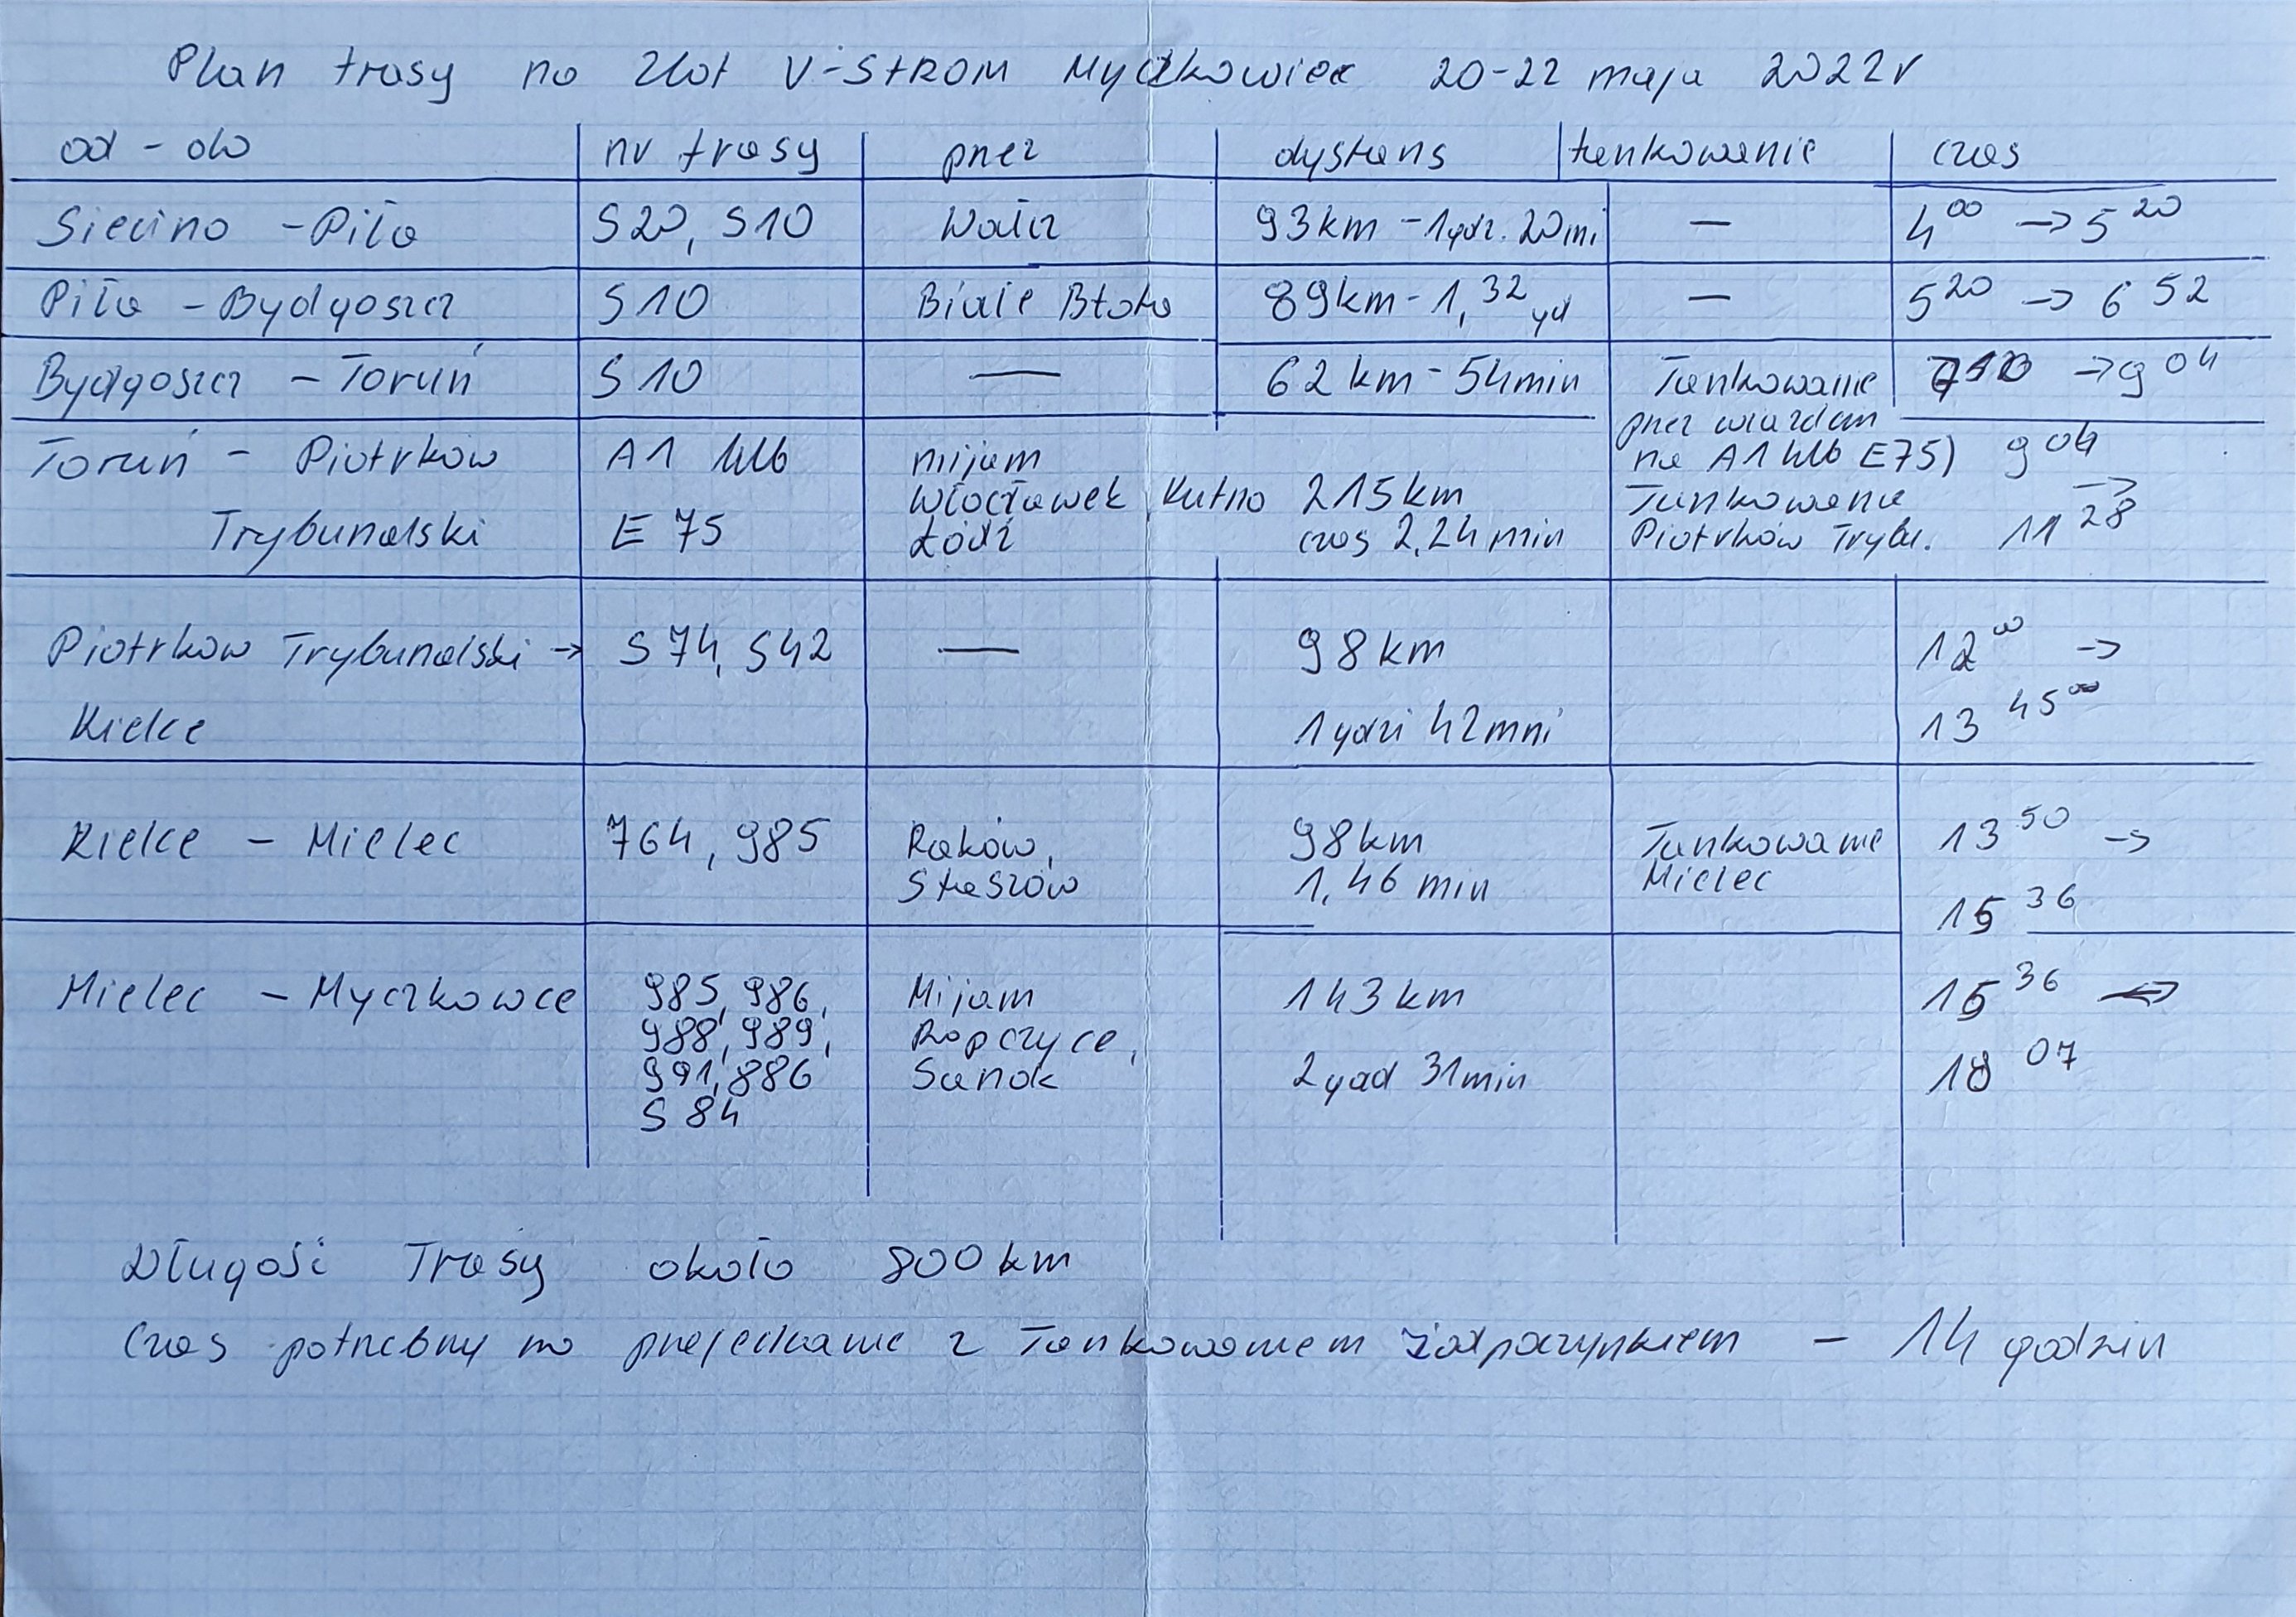 Plan trasy na Zlot V-STROM Myczkowice 20-22 maja 2022r
od - do nr trasy przez dystans tankowanie czas
Siecino - Piła S20, S10 Wałcz 93km - 1godz. 20mi — 4 00 → 5 20
Piła - Bydgoszcz S10 Białe Błota 89km - 1,32 gd — 5 20 → 6 52
Bydgoszcz - Toruń S10 — 62 km - 54min Tankowanie → 9 04
przed wjazdem
Toruń - Piotrków A1 lub mijam na A1 lub E75) 9 04
Włocławek Kutno 215km Tankowanie →
Trybunalski E 75 Łódź czas 2,24 min Piotrków Trybu. 11 28
Piotrków Trybunalski → S 74, S42 — 98km 12 00 →
Kielce 1godzi 42mni 13 45
Kielce - Mielec 764, 985 Raków, 98km Tankowanie 13 50 →
Staszów 1,46 min Mielec 15 36
Mielec - Myczkowce 985, 986, Mijam 143km 15 36 →
988, 989, Ropczyce,
991, 886 Sanok 2god 31min 18 07
S 84
Długość Trasy około 800km
Czas potrzebny na przejechanie z Tankowaniem i odpoczynkiem - 14 godzin